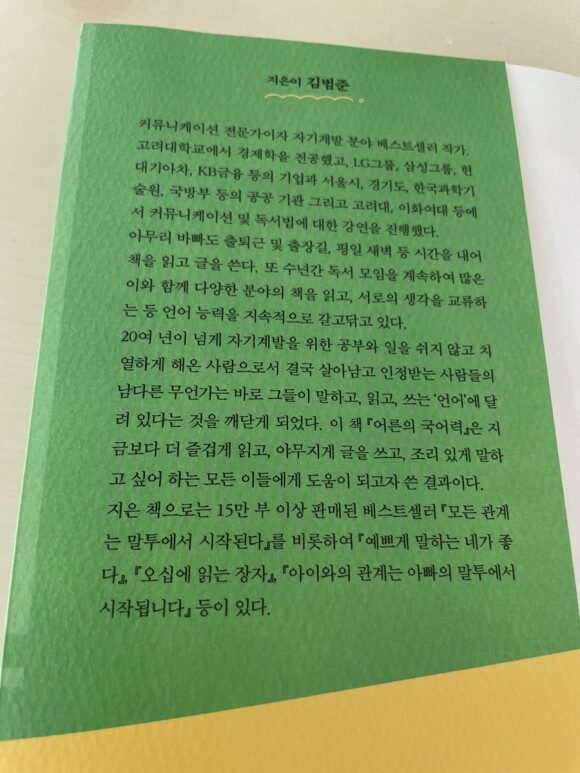 지은이 김범준
커뮤니케이션 전문가이자 자기계발 분야 베스트셀러 작가.
고려대학교에서 경제학을 전공했고, LG그룹, 삼성그룹, 현
대기아차, KB금융 등의 기업과 서울시, 경기도, 한국과학기
술원, 국방부 등의 공공 기관 그리고 고려대, 이화여대 등에
서 커뮤니케이션 및 독서법에 대한 강연을 진행했다.
아무리 바빠도 출퇴근 및 출장길, 평일 새벽 등 시간을 내어
책을 읽고 글을 쓴다. 또 수년간 독서 모임을 계속하며 많은
이와 함께 다양한 분야의 책을 읽고, 서로의 생각을 교류하
는 등 언어 능력을 지속적으로 갈고닦고 있다.
20여 년이 넘게 자기계발을 위한 공부와 일을 쉬지 않고 치
열하게 해온 사람으로서 결국 살아남고 인정받는 사람들의
남다른 무언가는 바로 그들이 말하고, 읽고, 쓰는 ‘언어’에 달
려 있다는 것을 깨닫게 되었다. 이 책 『어른의 국어력』은 지
금보다 더 즐겁게 읽고, 야무지게 글을 쓰고, 조리 있게 말하
고 싶어 하는 모든 이들에게 도움이 되고자 쓴 결과이다.
지은 책으로는 15만 부 이상 판매된 베스트셀러 『모든 관계
는 말투에서 시작된다』를 비롯하여 『예쁘게 말하는 네가 좋
다』, 『오십에 읽는 장자』, 『아이와의 관계는 아빠의 말투에서
시작됩니다』 등이 있다.